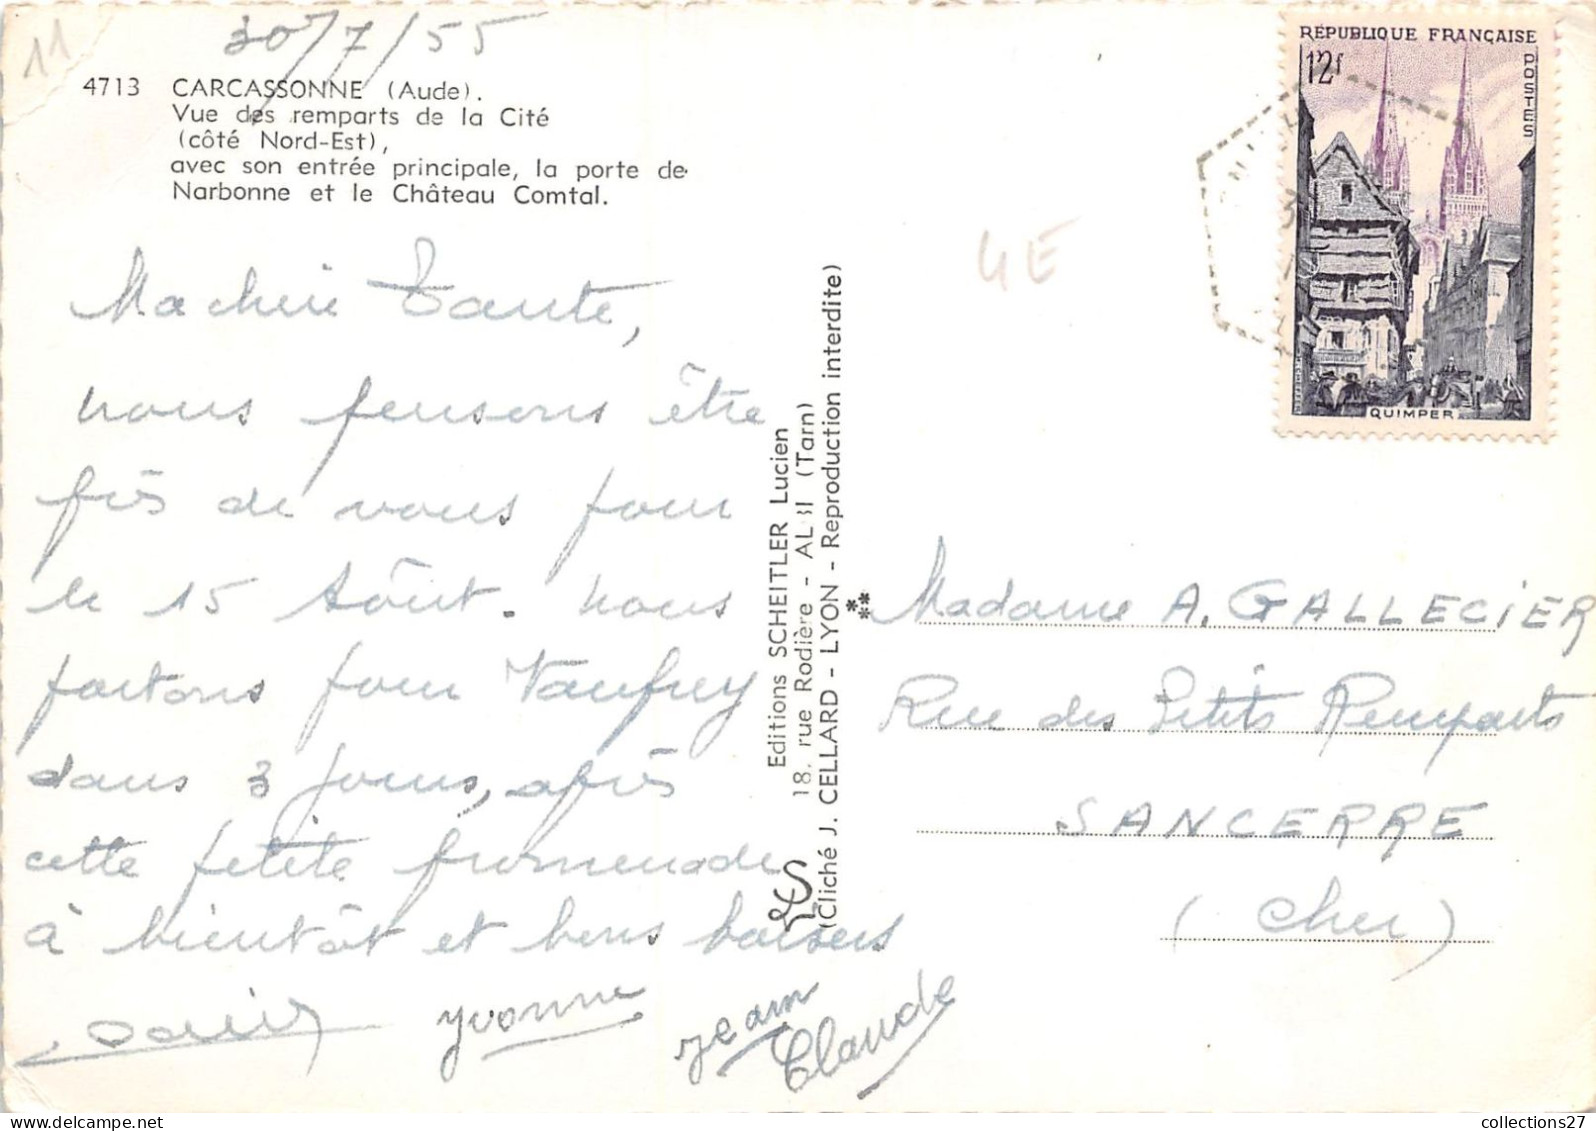 11
30/7/55
4713 CARCASSONNE (Aude).
Vue des remparts de la Cité
(côté Nord-Est),
avec son entrée principale, la porte de
Narbonne et le Château Comtal.
Ma chère Tante,
nous pensons être
près de vous pour
le 15 Août. Nous
partons pour Vaufrey
dans 3 jours, après
cette petite promenade
à bientôt et bons baisers
Yvonne
Jean Claude
Editions SCHEITLER Lucien
18, rue Rodière - ALBI (Tarn)
(Cliché J. CELLARD - LYON - Reproduction interdite)
**
4E
RÉPUBLIQUE FRANÇAISE
12f
POSTES
QUIMPER
Madame A. GALLECIER
Rue des Petits Remparts
SANCERRE
(Cher)
collections27